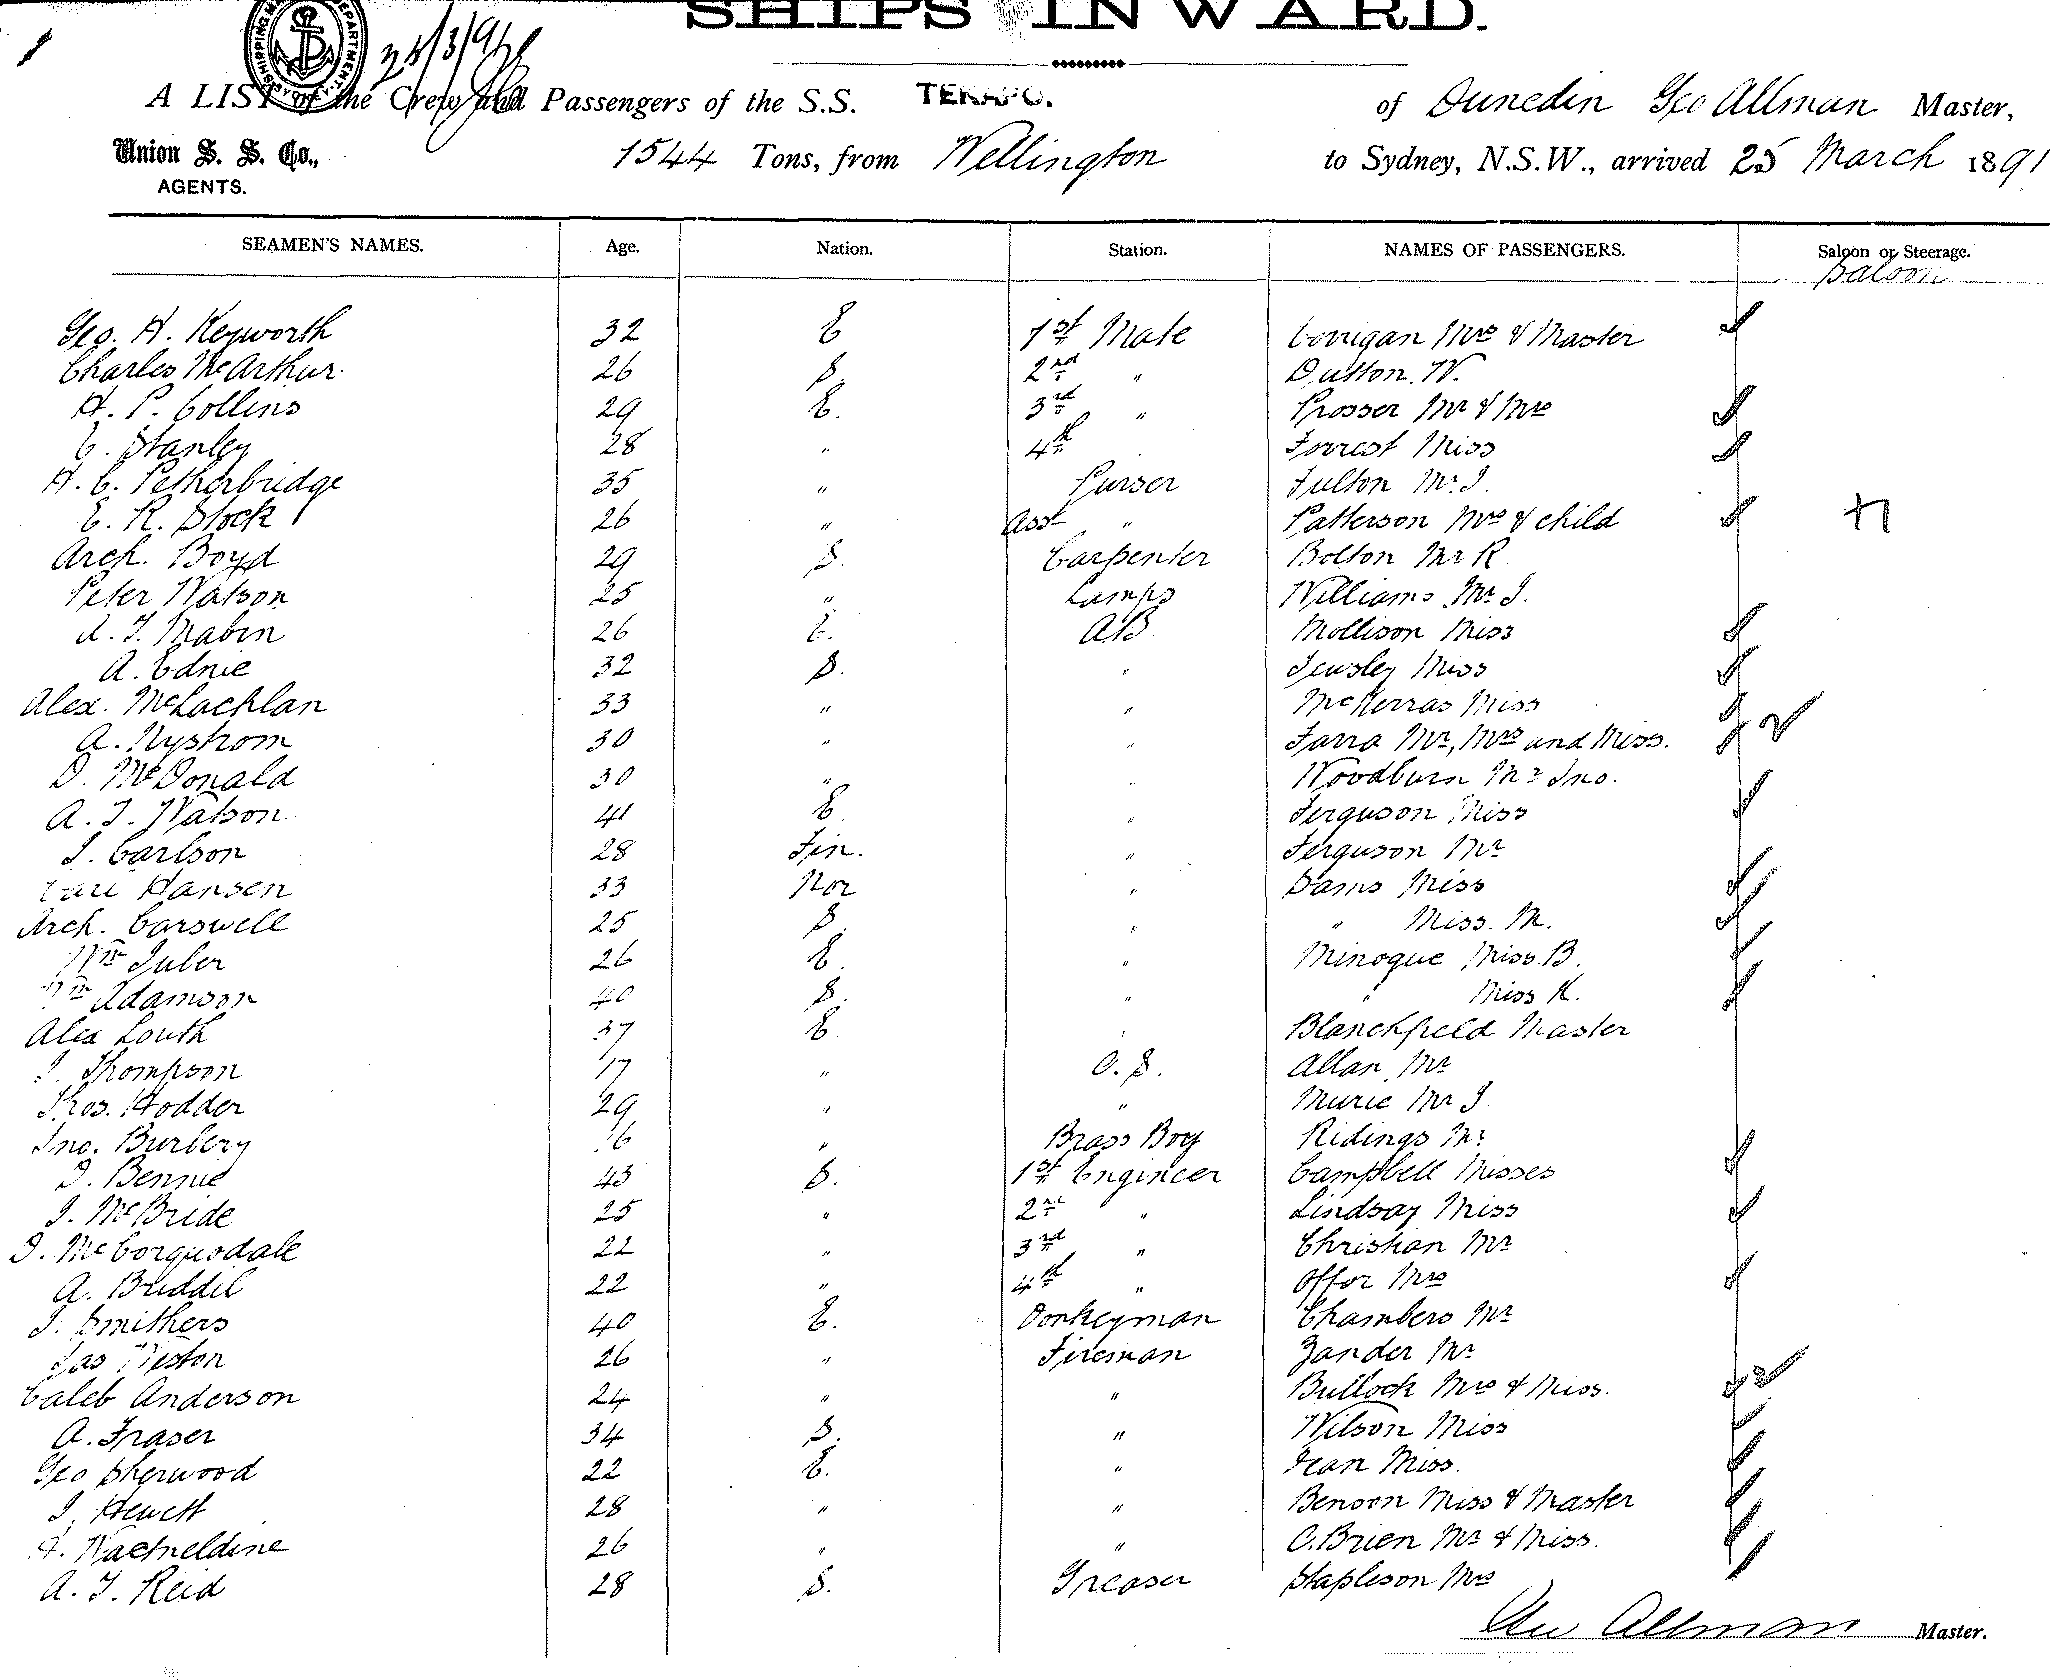 SHIPS INWARD.
SHIPPING MASTER'S DEPARTMENT SYDNEY
24/3/91
A LIST of the Crew and Passengers of the S.S. TEKAPO. of Dunedin Geo Allman Master,
Union S. S. Co., 1544 Tons, from Wellington to Sydney, N.S.W., arrived 25 March 1891
AGENTS.
SEAMEN'S NAMES. Age. Nation. Station. NAMES OF PASSENGERS. Saloon or Steerage.
Saloon
Geo. H. Keyworth 32 E 1st Mate Corrigan Mrs & Master
Charles McArthur. 26 S. 2nd " Dutton. W.
H. P. Collins 29 E. 3rd " Prosser Mr & Mrs
C. Stanley 28 " 4th Forrest Miss
H. C. Petherbridge 35 " Purser Fulton Mr J.
E. R. Stock 26 " Asst " Patterson Mrs & child
Arch. Boyd 29 S. Carpenter Bolton Mr R
Peter Watson 25 " Lamps Williams Mr J.
A. J. Mabin 26 E. AB Mollison Miss
A. Ednie 32 S. " Tewsley Miss
Alex. McLachlan 33 " " McKerras Miss
A. Nystrom 30 " " Farra Mr, Mrs and Miss.
D. McDonald 30 " " Woodburn Mr Jno.
A. J. Watson 41 E " Ferguson Miss
J. Carlson 28 Fin. " Ferguson Mr
Carl Hansen 33 Nor " Dams Miss
Arch. Carswell 25 S. " " Miss. M.
Wm Juber 26 E. " Minogue Miss B.
Wm Adamson 40 S. " " Miss K.
Alex Louth 37 E. " Blanchfield Master
J. Thompson 17 " O. S. Allan Mr
Thos. Hodder 29 " " Murie Mr J.
Jno. Burbery 16 " Brass Boy Ridings Mr
J. Bennie 43 S. 1st Engineer Campbell Misses
J. McBride 25 " 2nd " Lindsay Miss
D. McCorquodale 22 " 3rd " Christian Mr
A. Briddel 22 " 4th " Offor Mrs
J. Smithers 40 E. Donkeyman Chambers Mr
Jas Weston 26 " Fireman Zander Mr
Caleb Anderson 24 " " Bullock Mrs & Miss.
A. Fraser 34 S. " Wilson Miss
Geo Sherwood 22 E. " Jean Miss.
J. Hewett 28 " " Benson Miss & Master
26 " " O'Brien Mr & Miss.
A. J. Reid 28 S. Greaser Stapleson Mrs
Geo Allman Master.